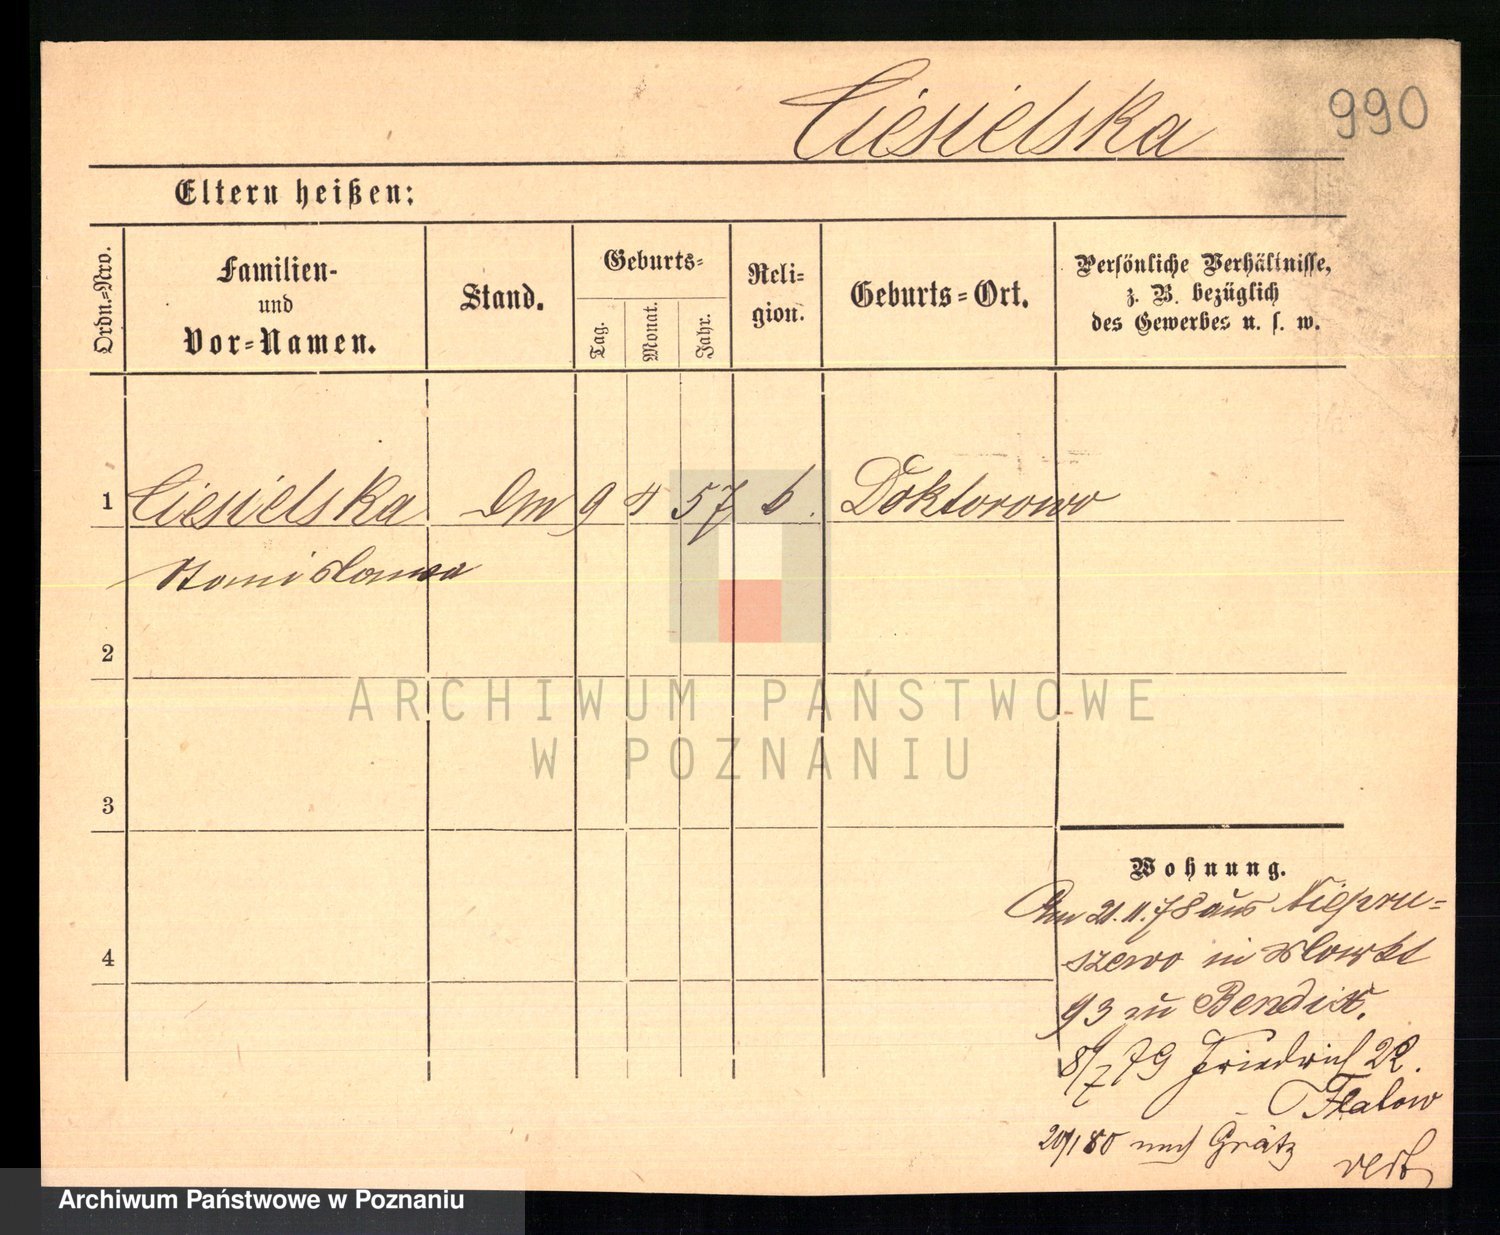 Ciesielska
990
Eltern heißen:
Ordn.-Nro.
Familien-
und
Vor-Namen.
Stand.
Geburts-
Tag.
Monat.
Jahr.
Reli-
gion.
Geburts-Ort.
Persönliche Verhältnisse,
z. B. bezüglich
des Gewerbes u. s. w.
1 Ciesielska Dm 9 4 57 k. Doktorowo
Stanislawa
2
ARCHIWUM PAŃSTWOWE
W POZNANIU
3
Wohnung.
Am 21.11.78 aus Niepru-
4
szewo in Markt
93 zu Bendix.
8/7 79 Friedrich 22.
Flatow
20/1 80 nach Grätz
verz
Archiwum Państwowe w Poznaniu